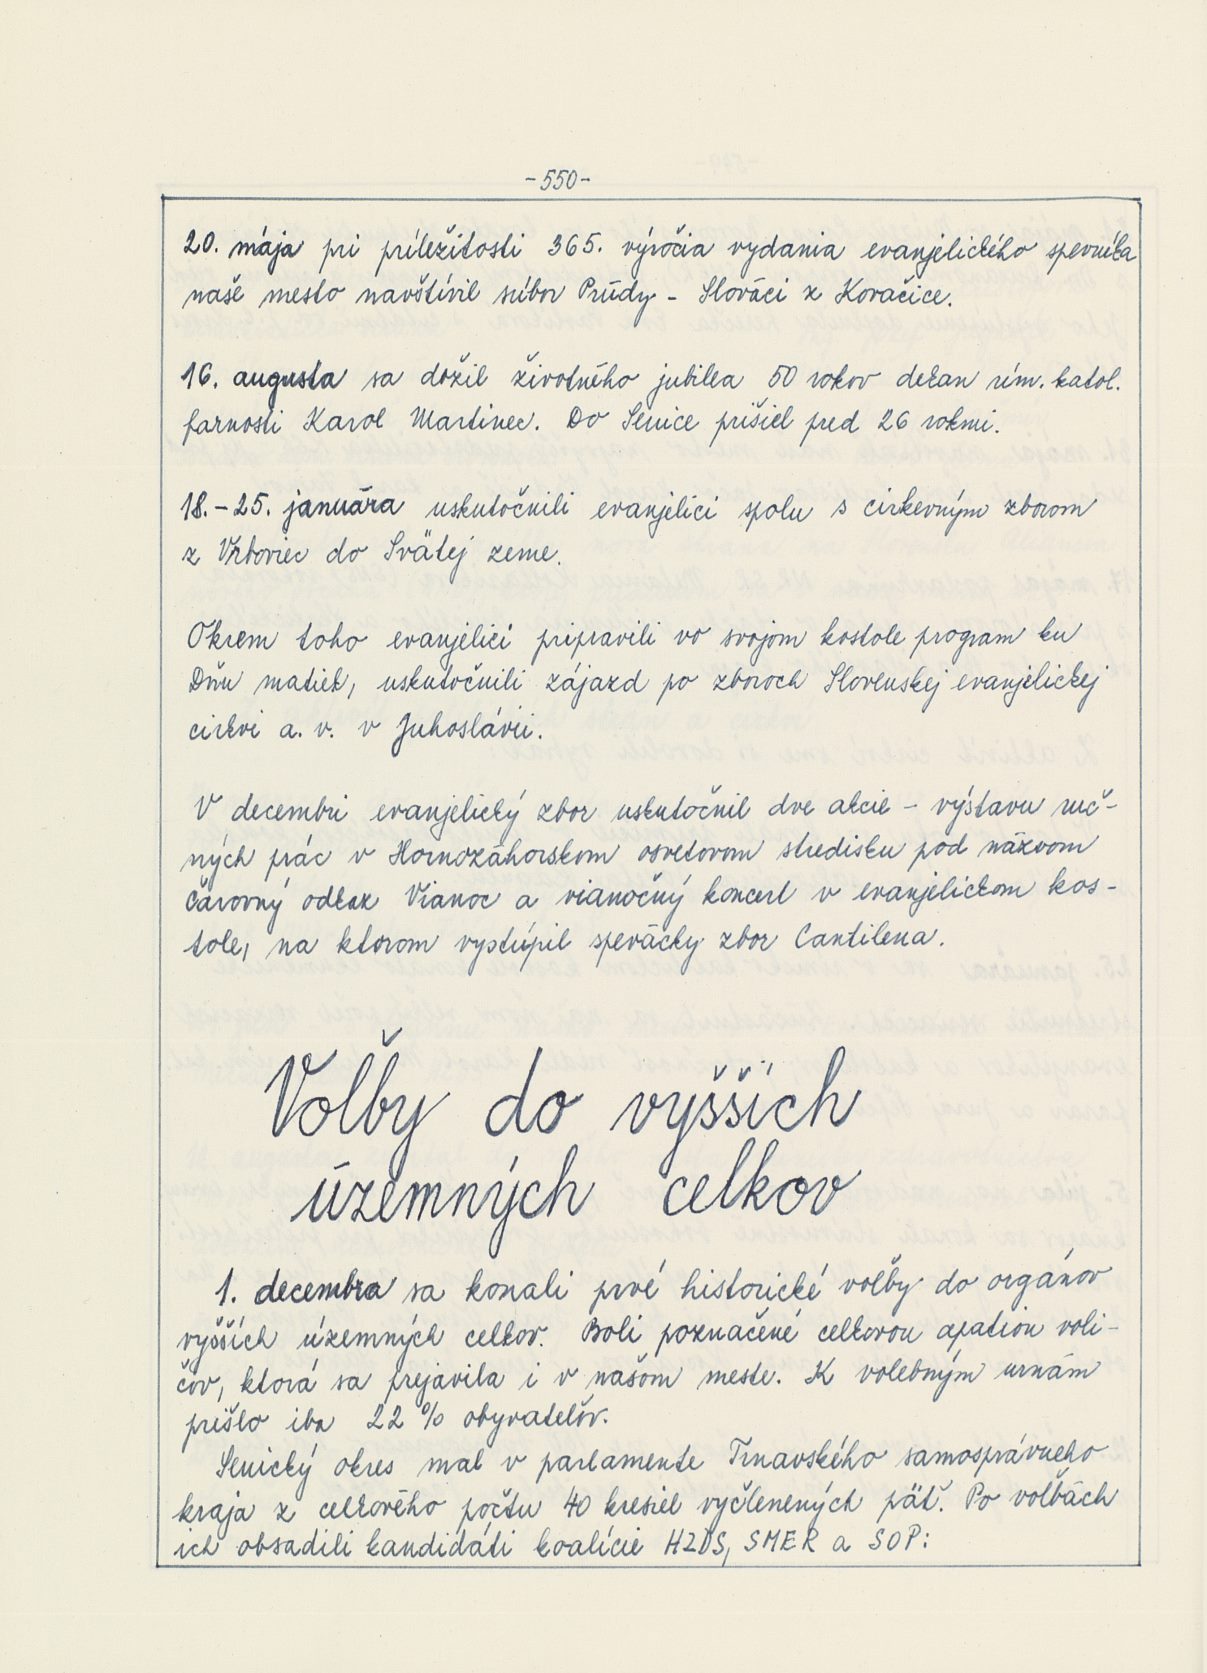 -550-
20. mája pri príležitosti 365. výročia vydania evanjelického spevníka
naše mesto navštívil súbor Prúdy - Slováci z Kovačice.
16. augusta sa dožil životného jubilea 50 rokov dekan rím. katol.
farnosti Karol Martinec. Do Senice prišiel pred 26 rokmi.
18.-25. januára uskutočnili evanjelici spolu s cirkevným zborom
z Vrboviec do Svätej zeme.
Okrem toho evanjelici pripravili vo svojom kostole program ku
Dňu matiek, uskutočnili zájazd po zboroch Slovenskej evanjelickej
cirkvi a. v. v Juhoslávii.
V decembri evanjelický zbor uskutočnil dve akcie - výstavu ruč-
ných prác v Hornozáhorskom osvetovom stredisku pod názvom
Čarovný odkaz Vianoc a vianočný koncert v evanjelickom kos-
tole, na ktorom vystúpil spevácky zbor Cantilena.
Voľby do vyšších
územných celkov
1. decembra sa konali prvé historické voľby do orgánov
vyšších územných celkov. Boli poznačené celkovou apatiou voli-
čov, ktorá sa prejavila i v našom meste. K volebným urnám
prišlo iba 22 % obyvateľov.
Senický okres mal v parlamente Trnavského samosprávneho
kraja z celkového počtu 40 kresiel vyčlenených päť. Po voľbách
ich obsadili kandidáti koalície HZDS, SMER a SOP: